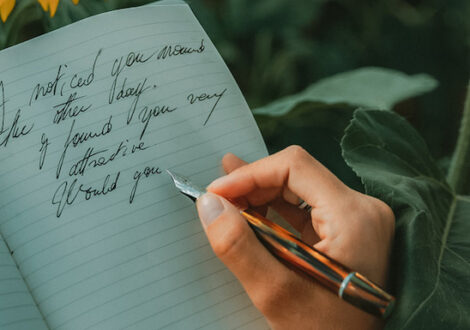 I noticed you around
the other day.
I found you very
attractive
Would you